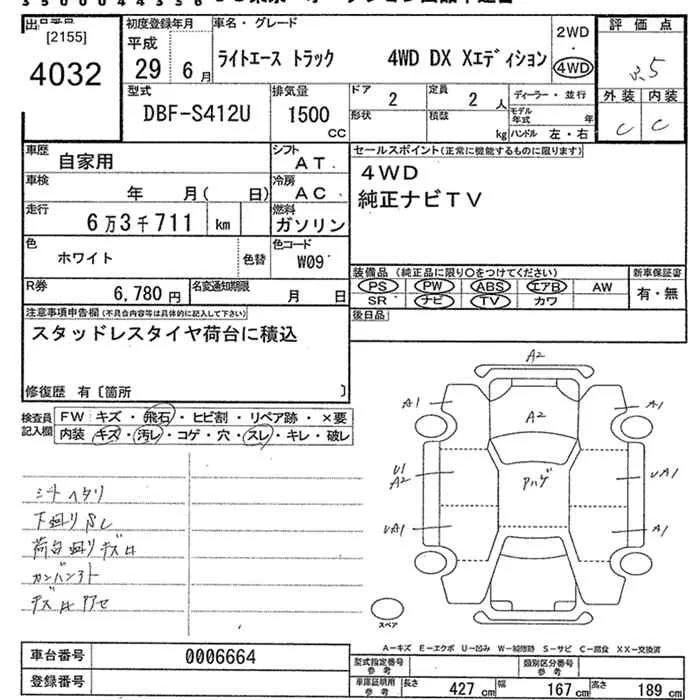 3500044356
出品番号
[2155]
4032
初度登録年月
平成
29 6月
車名・グレード
ライトエース トラック 4WD DX Xエディション
2WD
・
4WD
評価点
3.5
外装 内装
C C
型式
DBF-S412U
排気量
1500
CC
ドア
2
定員
2 人
形状
積載
kg
ディーラー・並行
モデル年式 年
ハンドル 左・右
車歴
自家用
シフト
AT
車検
年 月( 日)
冷房
AC
走行
6万3千711 km
燃料
ガソリン
色
ホワイト
色替
色コード
W09
R券
6,780 円
名変通知期限
月 日
セールスポイント(正常に機能するものに限ります)
4WD
純正ナビTV
装備品 (純正品に限り○をつけてください)
PS PW ABS エアB AW
SR ナビ TV カワ
新車保証書
有・無
後日品
注意事項申告欄(不具合内容等は具体的に記入して下さい)
スタッドレスタイヤ荷台に積込
修復歴 有〔箇所 〕
検査員
記入欄
FW キズ・飛石・ヒビ割・リペア跡・×要
内装 キズ・汚レ・コゲ・穴・スレ・キレ・破レ
シートヘタリ
下廻りサビ
A2
A1
A2
A1
U1
A2
UA1
UA1
A1
スペア
A-キズ E-エクボ U-凹み W-補修跡 S-サビ C-腐食 XX-交換済
車台番号
0006664
登録番号
型式指定番号
参考
類別区分番号
参考
車庫証明用
参考
長さ 427 cm 幅 167 cm 高さ 189 cm